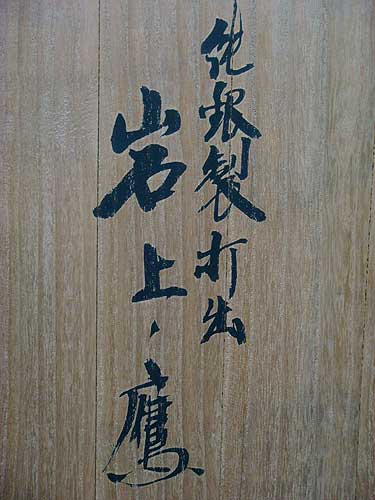 純銀製打出
岩上ノ鷹